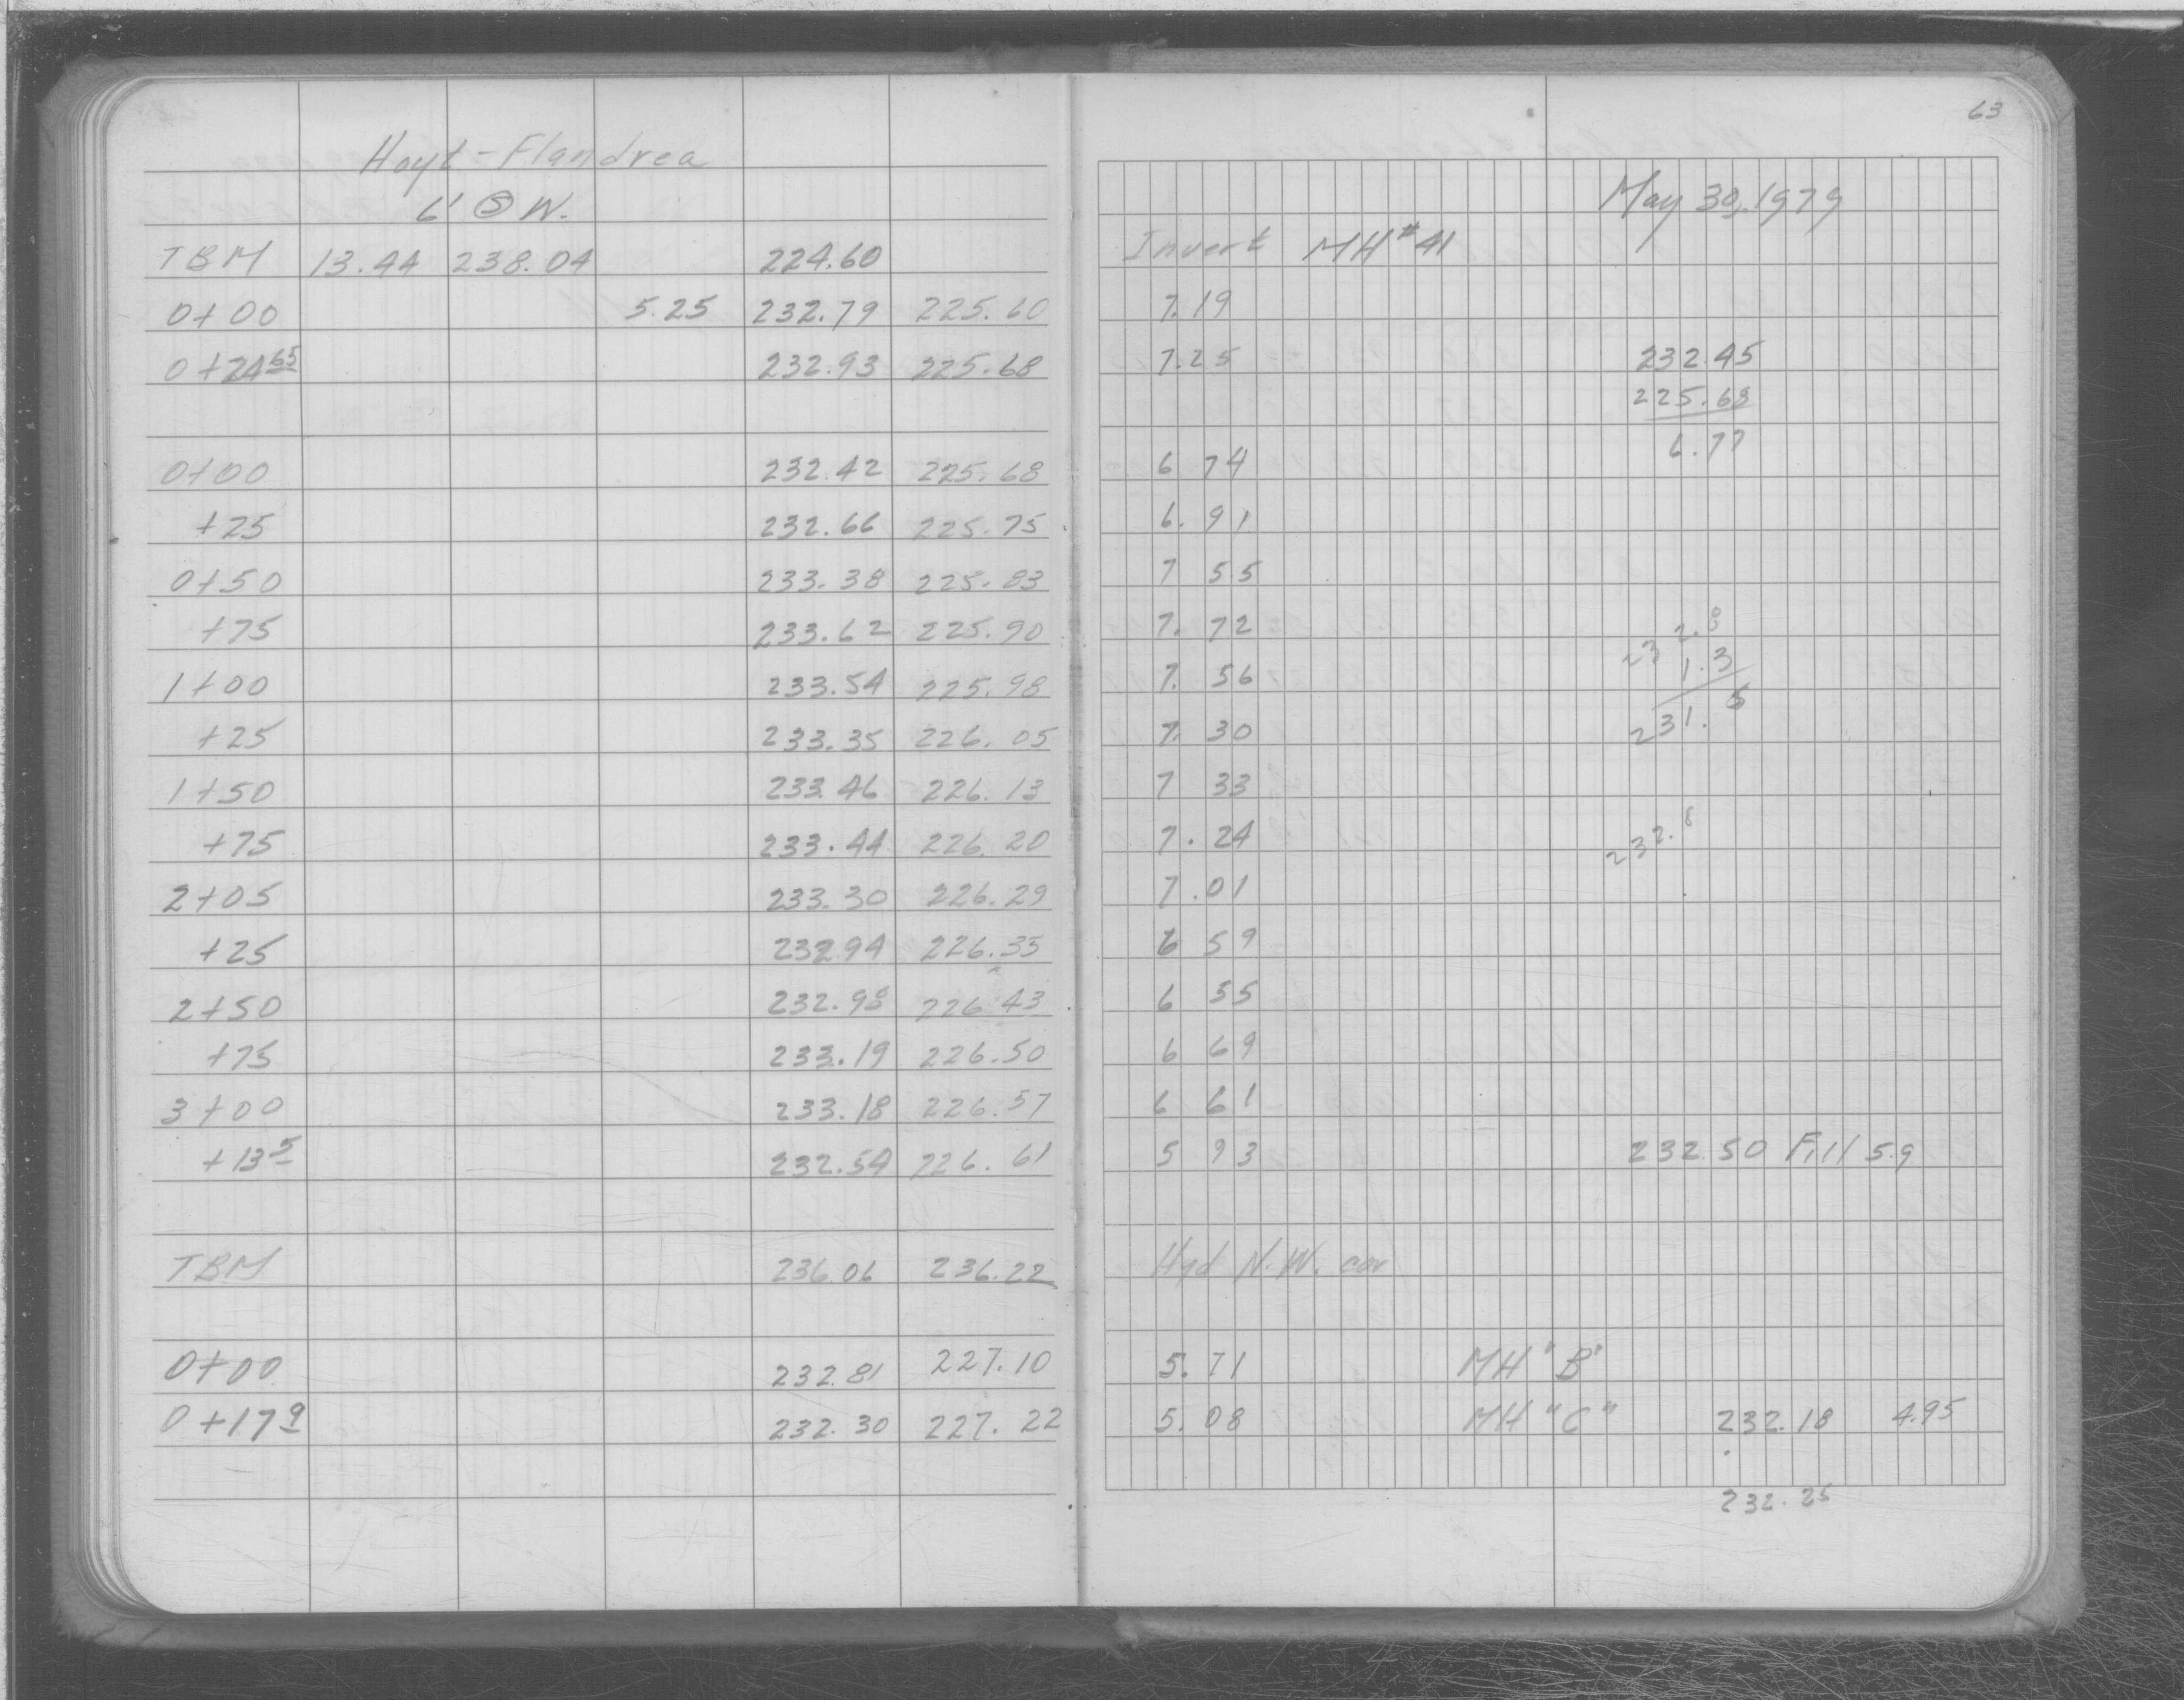 63
Hoyt - Flandrea
6' Ⓢ W.
May 30, 1979
TBM 13.44 238.04 224.60 Invert MH #41
0+00 5.25 232.79 225.60 7.19
0+24 65 232.93 225.68 7.25 232.45
225.68
6.77
0+00 232.42 225.68 6 74
+25 232.66 225.75 6.91
0+50 233.38 225.83 7 55
+75 233.62 225.90 7.72 232.8
1+00 233.54 225.98 7.56 1.3
+25 233.35 226.05 7.30 231.5
1+50 233.46 226.13 7 33
+75 233.44 226.20 7.24 232.8
2+05 233.30 226.29 7.01
+25 232.94 226.35 6 59
2+50 232.98 226.43 6 55
+75 233.19 226.50 6 69
3+00 233.18 226.57 6 61
+13 5 232.54 226.61 5 93 232.50 Fill 5.9
TBM 236.06 236.22 Hyd N.W. cor
0+00 232.81 227.10 5.71 MH "B"
0+17 9 232.30 227.22 5.08 MH "C" 232.18 4.95
232.25